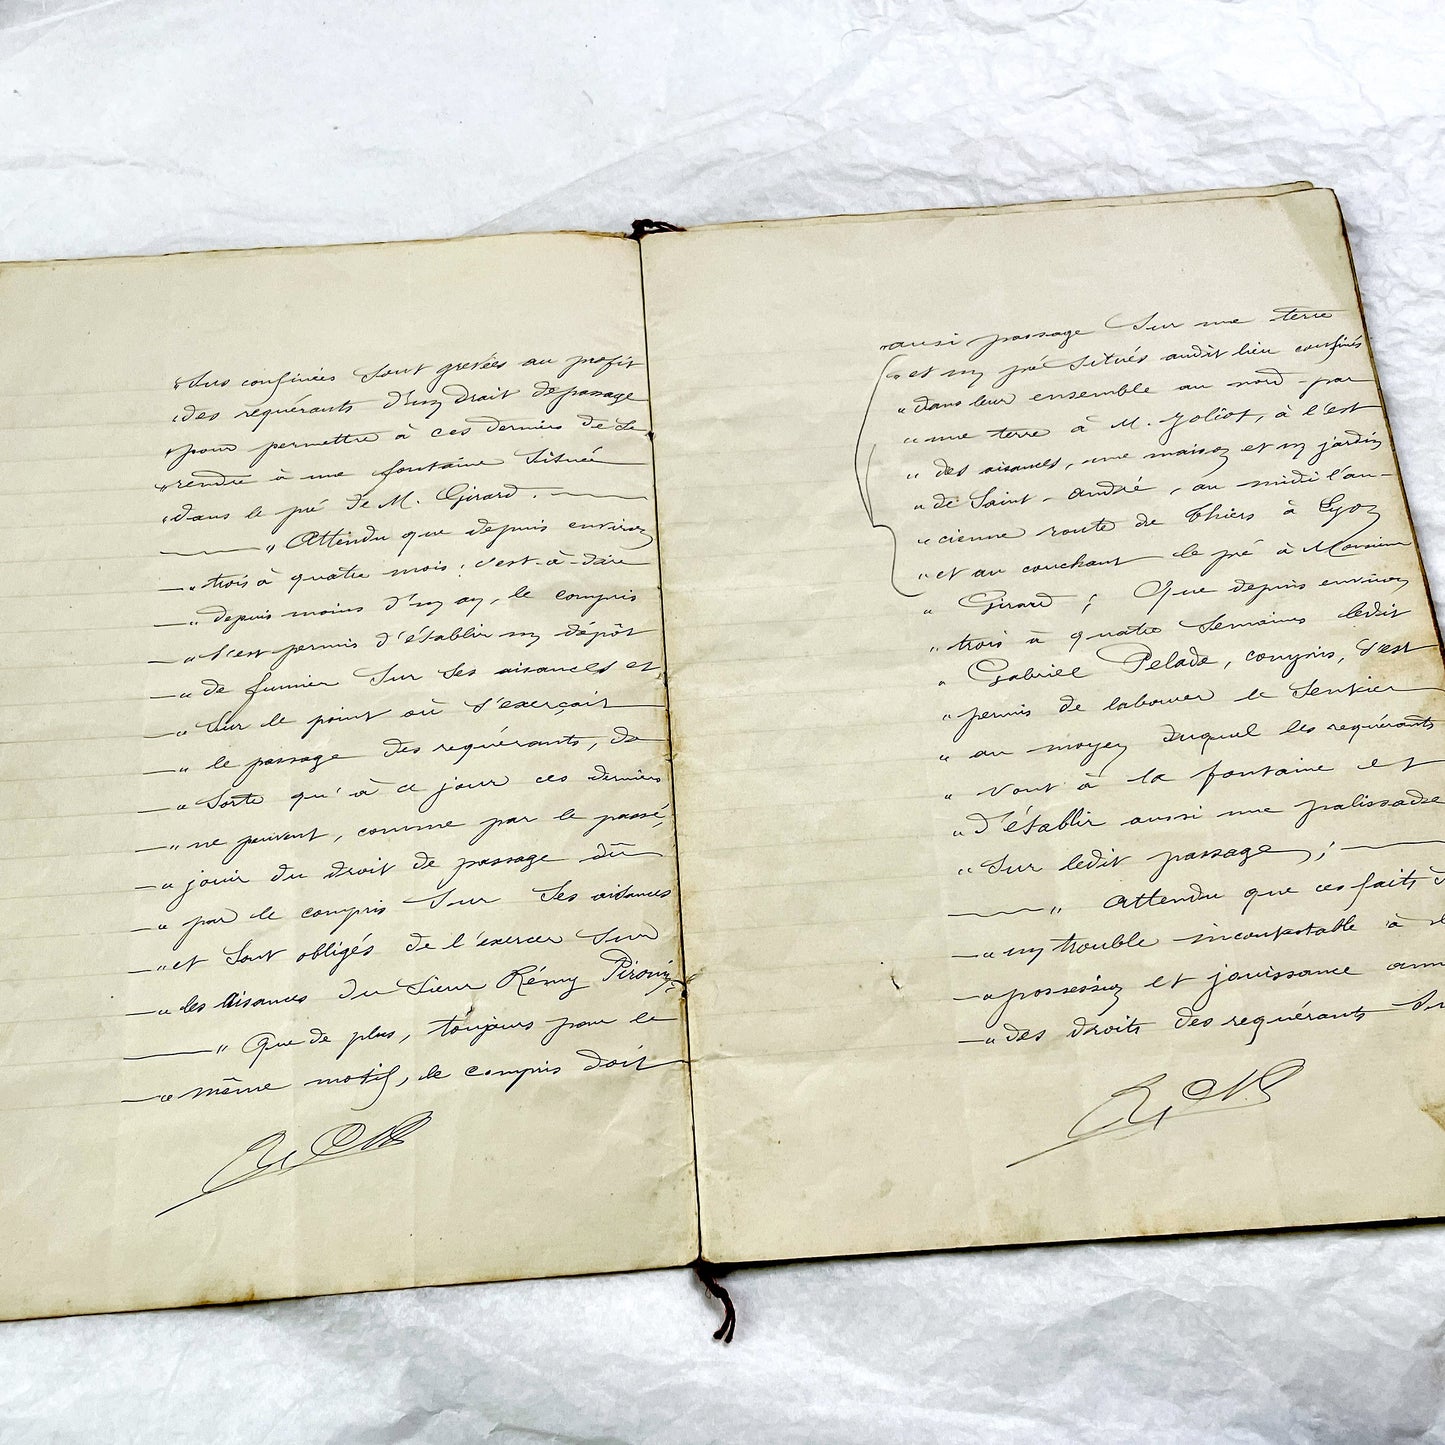 "sus confinées sont grevées au profit
"des requérants d'un droit de passage
"pour permettre à ces derniers de se
"rendre à une fontaine située
"dans le pré de M. Girard.
" Attendu que depuis environ
" trois à quatre mois, c'est-à-dire
" depuis moins d'un an, le compris
" s'est permis d'établir un dépôt
" de fumier sur ses aisances et
" sur le point où s'exerçait
" le passage des requérants, de
" sorte qu'à ce jour ces derniers
" ne peuvent, comme par le passé,
" jouir du droit de passage dû
" par le compris sur ses aisances
" et sont obligés de l'exercer sur
" les aisances du sieur Rémy
" Que de plus, toujours pour le
" même motif, le compris doit
"aussi passage sur une terre
" et un pré situés audit lieu confinés
" dans leur ensemble au nord par
" une terre à M. Joliot, à l'est
" des aisances, une maison et un jardin
" de Saint-André, au midi l'an-
" cienne route de Thiers à Lyon
" et au couchant le pré à Monsieur
" Girard ; Que depuis environ
" trois à quatre semaines ledit
" Gabriel Pelade, compris, s'est
" permis de labourer le sentier
" au moyen duquel les requérants
" vont à la fontaine et
" d'établir aussi une palissade
" sur ledit passage ;
" Attendu que ces faits
" un trouble incontestable à
" possession et jouissance
" des droits des requérants